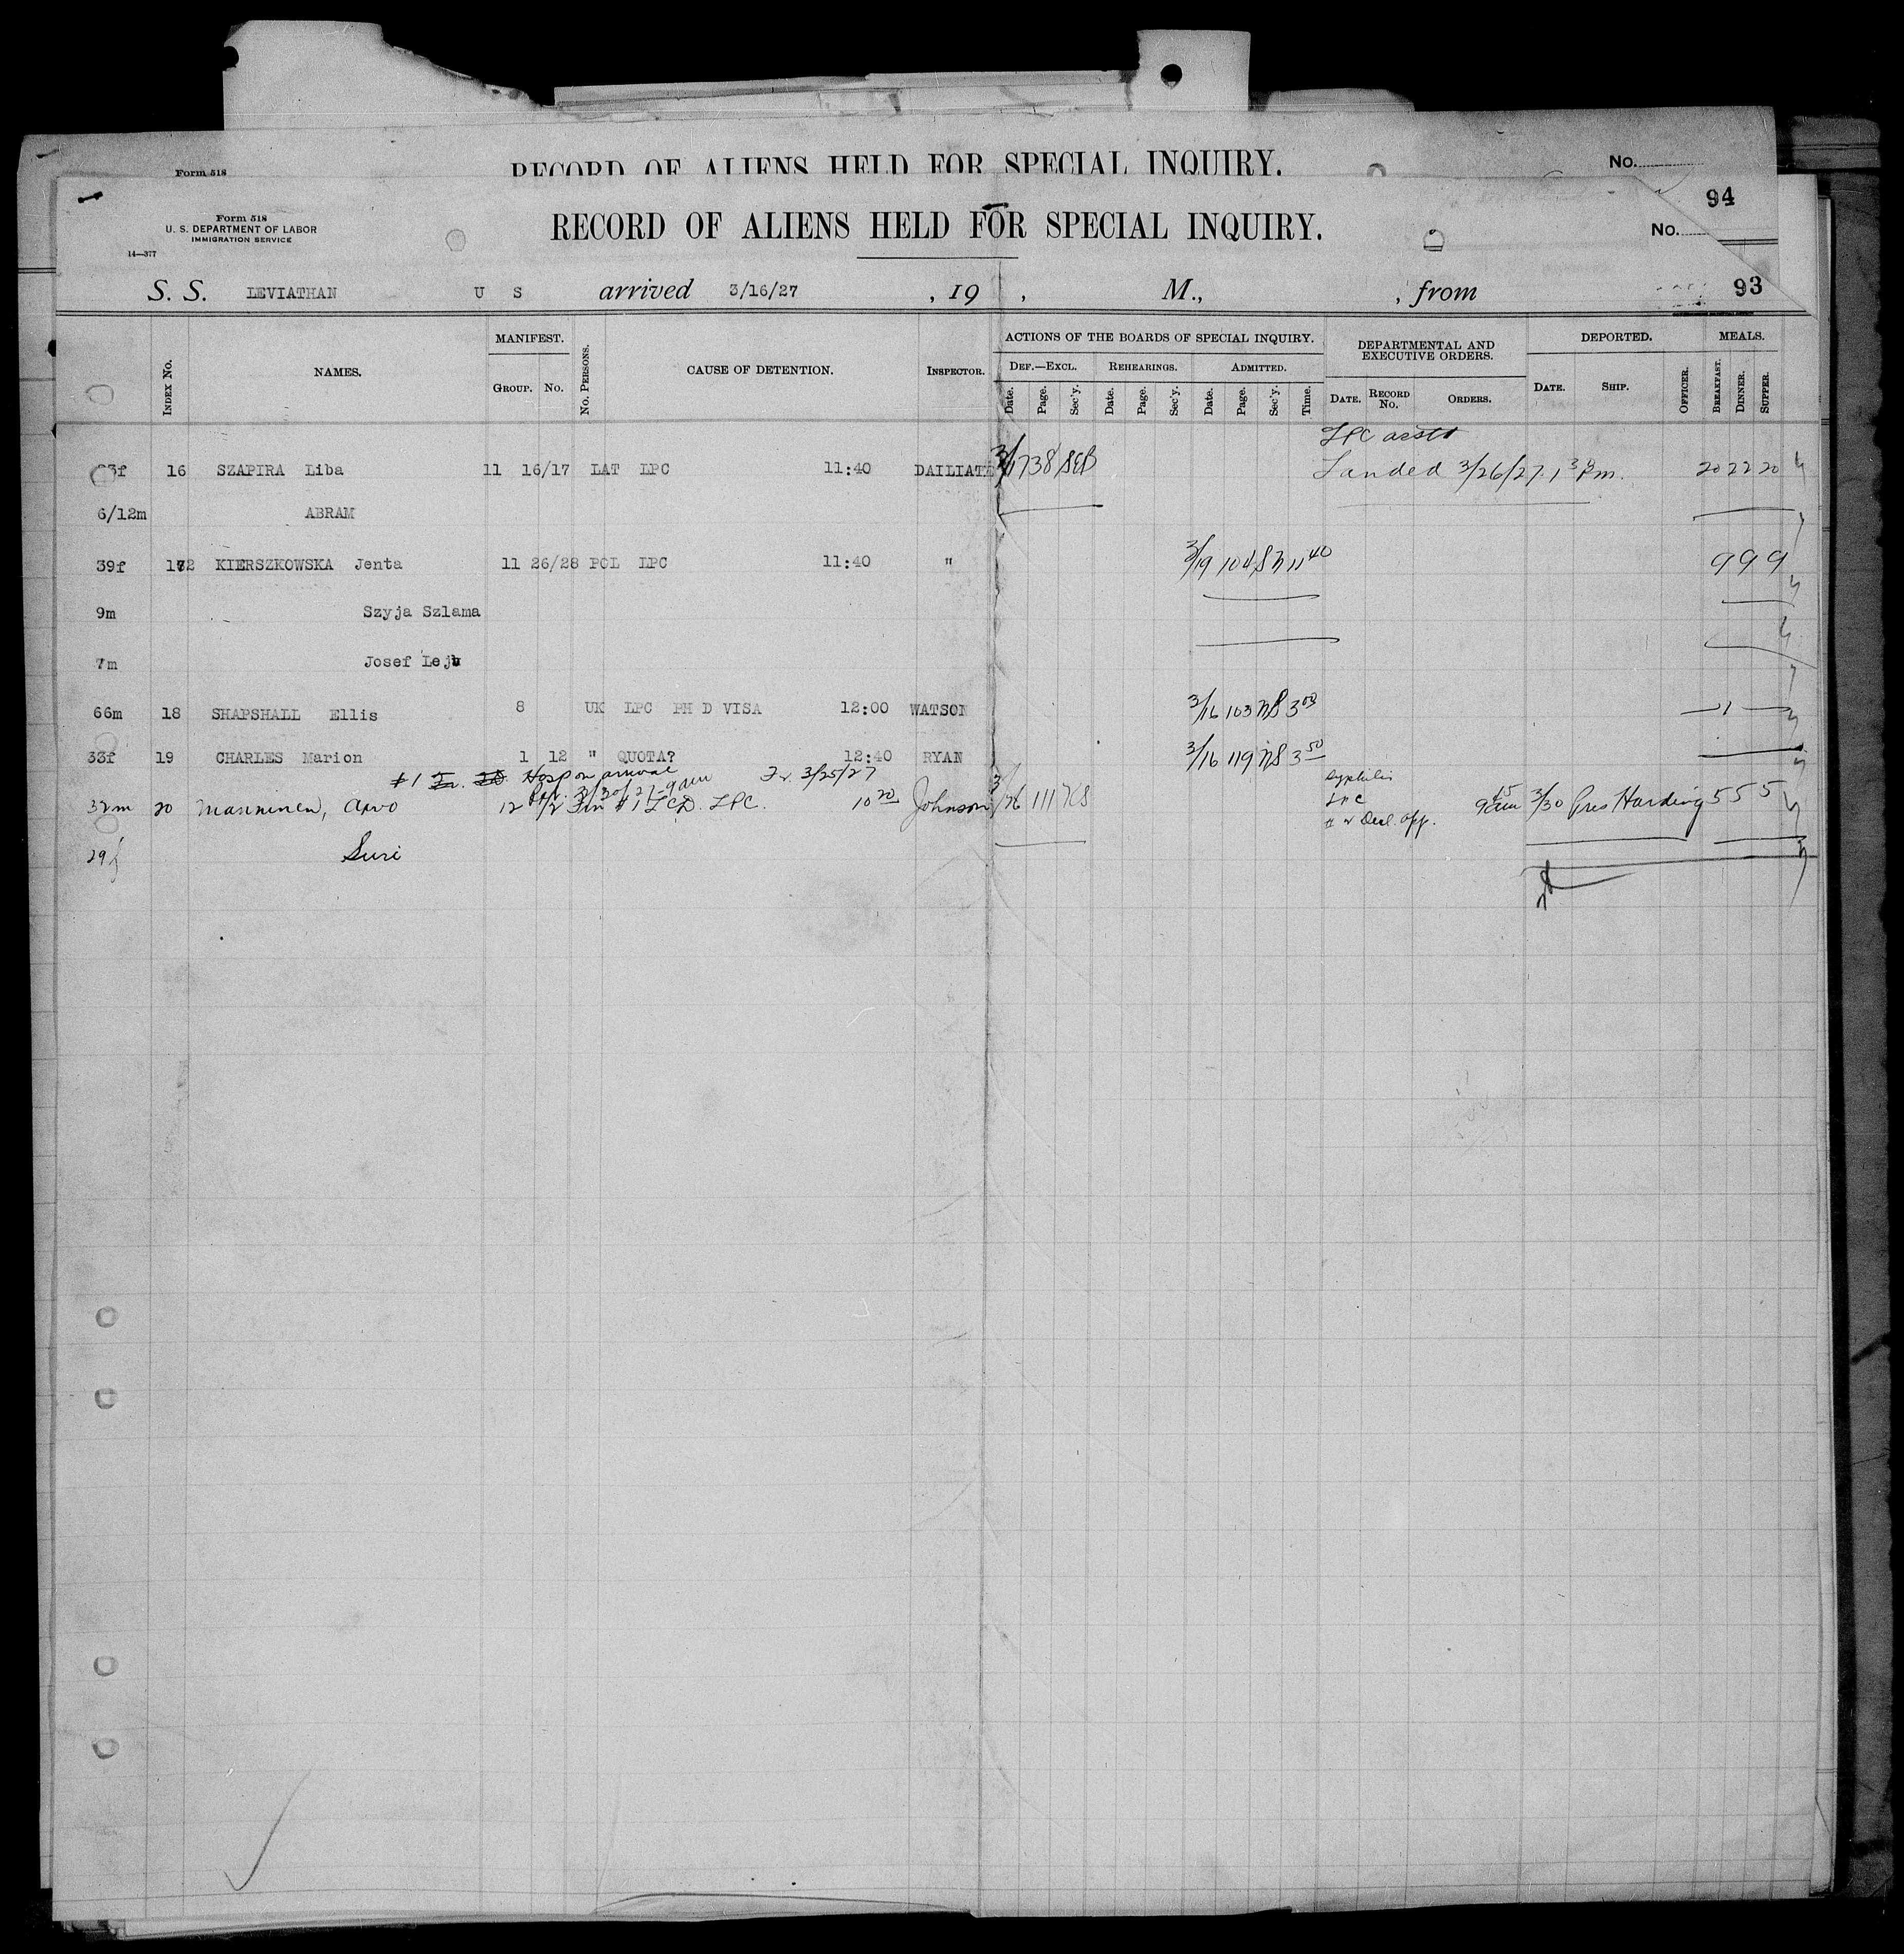 Form 518
RECORD OF ALIENS HELD FOR SPECIAL INQUIRY.
No.
94
Form 518
U. S. DEPARTMENT OF LABOR
IMMIGRATION SERVICE
14—377
RECORD OF ALIENS HELD FOR SPECIAL INQUIRY.
No.
93
S. S. LEVIATHAN U S arrived 3/16/27 , 19 , M., , from
INDEX No. NAMES. MANIFEST. GROUP. No. No. PERSONS. CAUSE OF DETENTION. INSPECTOR. ACTIONS OF THE BOARDS OF SPECIAL INQUIRY. DEF.—EXCL. Date. Page. Sec'y. REHEARINGS. Date. Page. Sec'y. ADMITTED. Date. Page. Sec'y. Time. DEPARTMENTAL AND EXECUTIVE ORDERS. DATE. RECORD No. ORDERS. DEPORTED. DATE. SHIP. OFFICER. MEALS. BREAKFAST. DINNER. SUPPER.
LPC
3f 16 SZAPIRA Liba 11 16/17 LAT LPC 11:40 3/17 38 SEB Landed 3/26/27 20 22 20
6/12m ABRAM
39f KIERSZKOWSKA Jenta 11 26/28 POL LPC 11:40 " 3/19 104 11 40 9 9 9
9m Szyja Szlama
7m Josef
66m 18 SHAPSHALL Ellis 8 UK LPC PH D VISA 12:00 WATSON 3/16 103 NS 3 00 1
33f 19 CHARLES Marion 1 12 " QUOTA? 12:40 RYAN 3/16 119 NS 3 50
#1 Hosp on arrival 3/25/27
Syphilis
32m 20 Manninen, Arvo 12 1/2 Fin #1 LCD. LPC. 10 20 Johnson 3/26 111 NS LPC 9 15 am 3/30 Pres Harding 5 5 5
Decl. app.
29f Suri